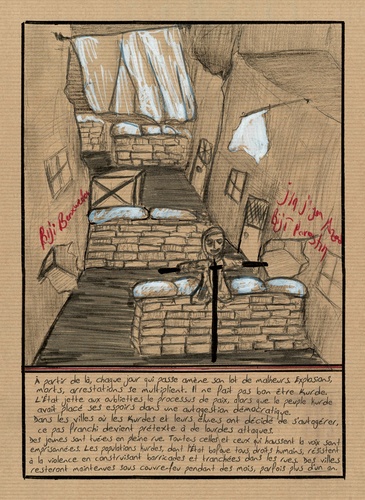 Biji Berxwedan
jin jiyan
Biji
À partir de là, chaque jour qui passe amène son lot de malheurs. Explosions,
morts, arrestations se multiplient. Il ne fait pas bon être Kurde.
L'État jette aux oubliettes le processus de paix, alors que le peuple kurde
avait placé ses espoirs dans une autogestion démocratique.
Dans les villes où les Kurdes et leurs élu·es ont décidé de s'autogérer,
ce pas franchi devient prétexte à de lourdes attaques.
Des jeunes sont tué·es en pleine rue. Toutes celles et ceux qui haussent la voix sont
emprisonné·es. Les populations kurdes, dont l'État bafoue tous droits humains, résistent
à la violence en construisant barricades et tranchées dans les rues. Des villes
resteront maintenues sous couvre-feu pendant des mois, parfois plus d'un an.